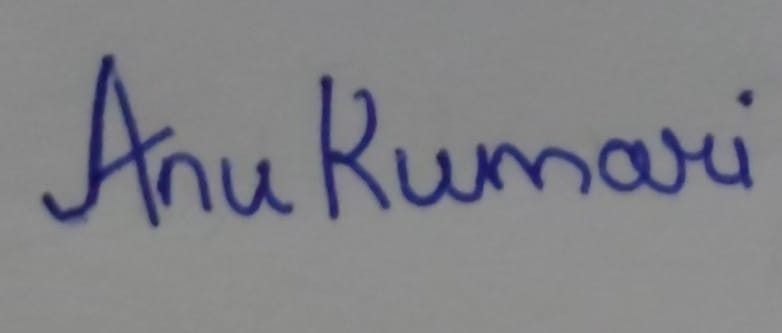 Anu Kumari